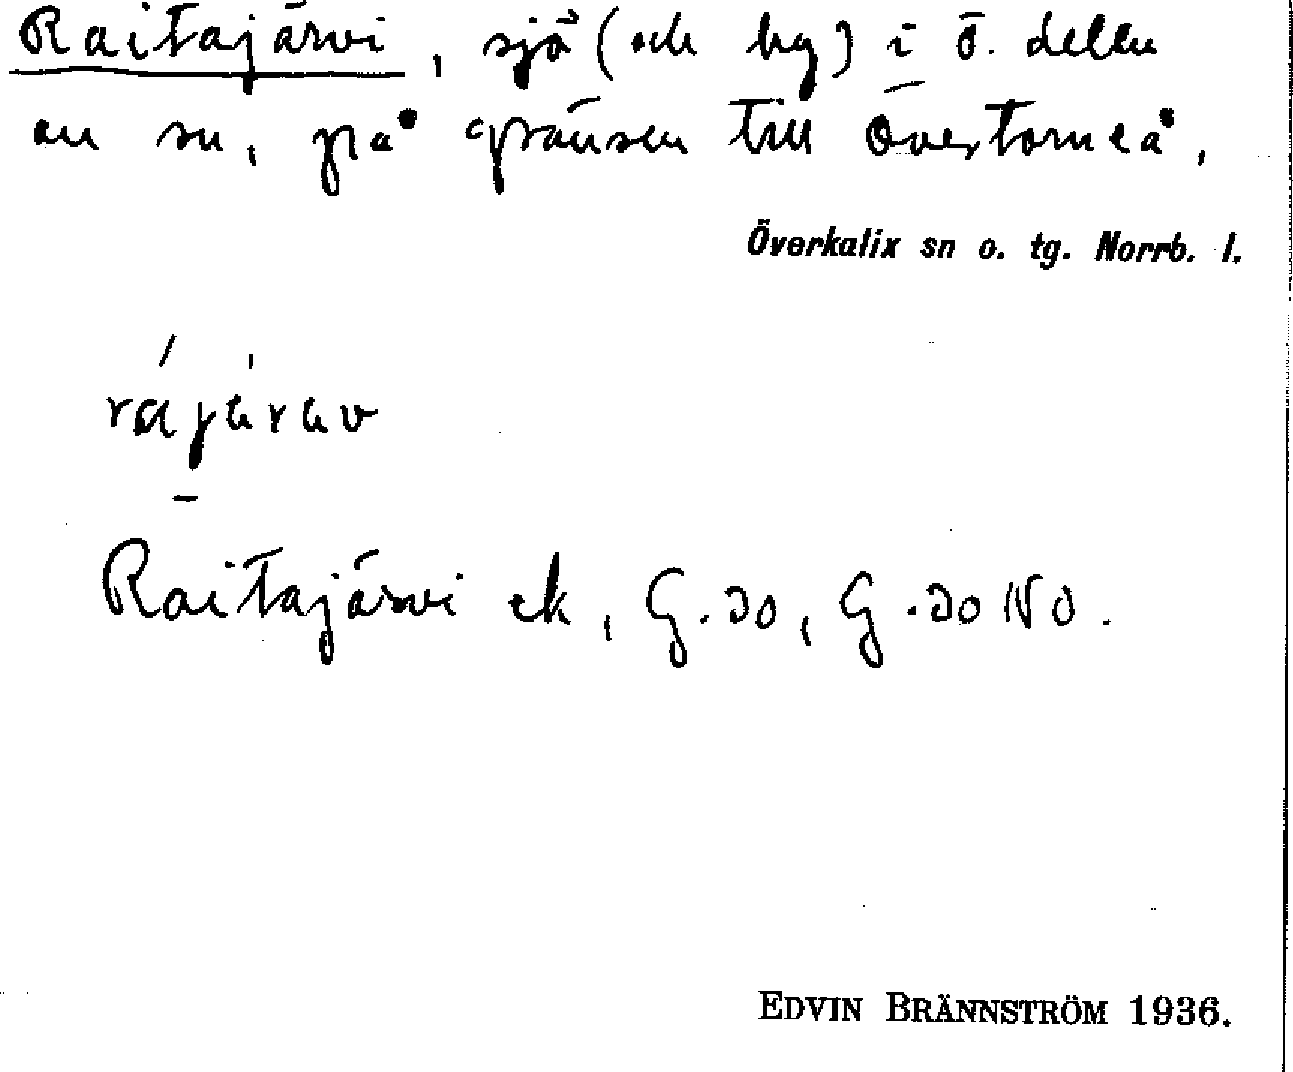 Raitajärvi, sjö (och by) i ö. delen
av sn, på gränsen till Övertorneå,
Överkalix sn o. tg. Norrb. l.
Raitajärvi ek, G. 30, G. 30 NO.
EDVIN BRÄNNSTRÖM 1936.